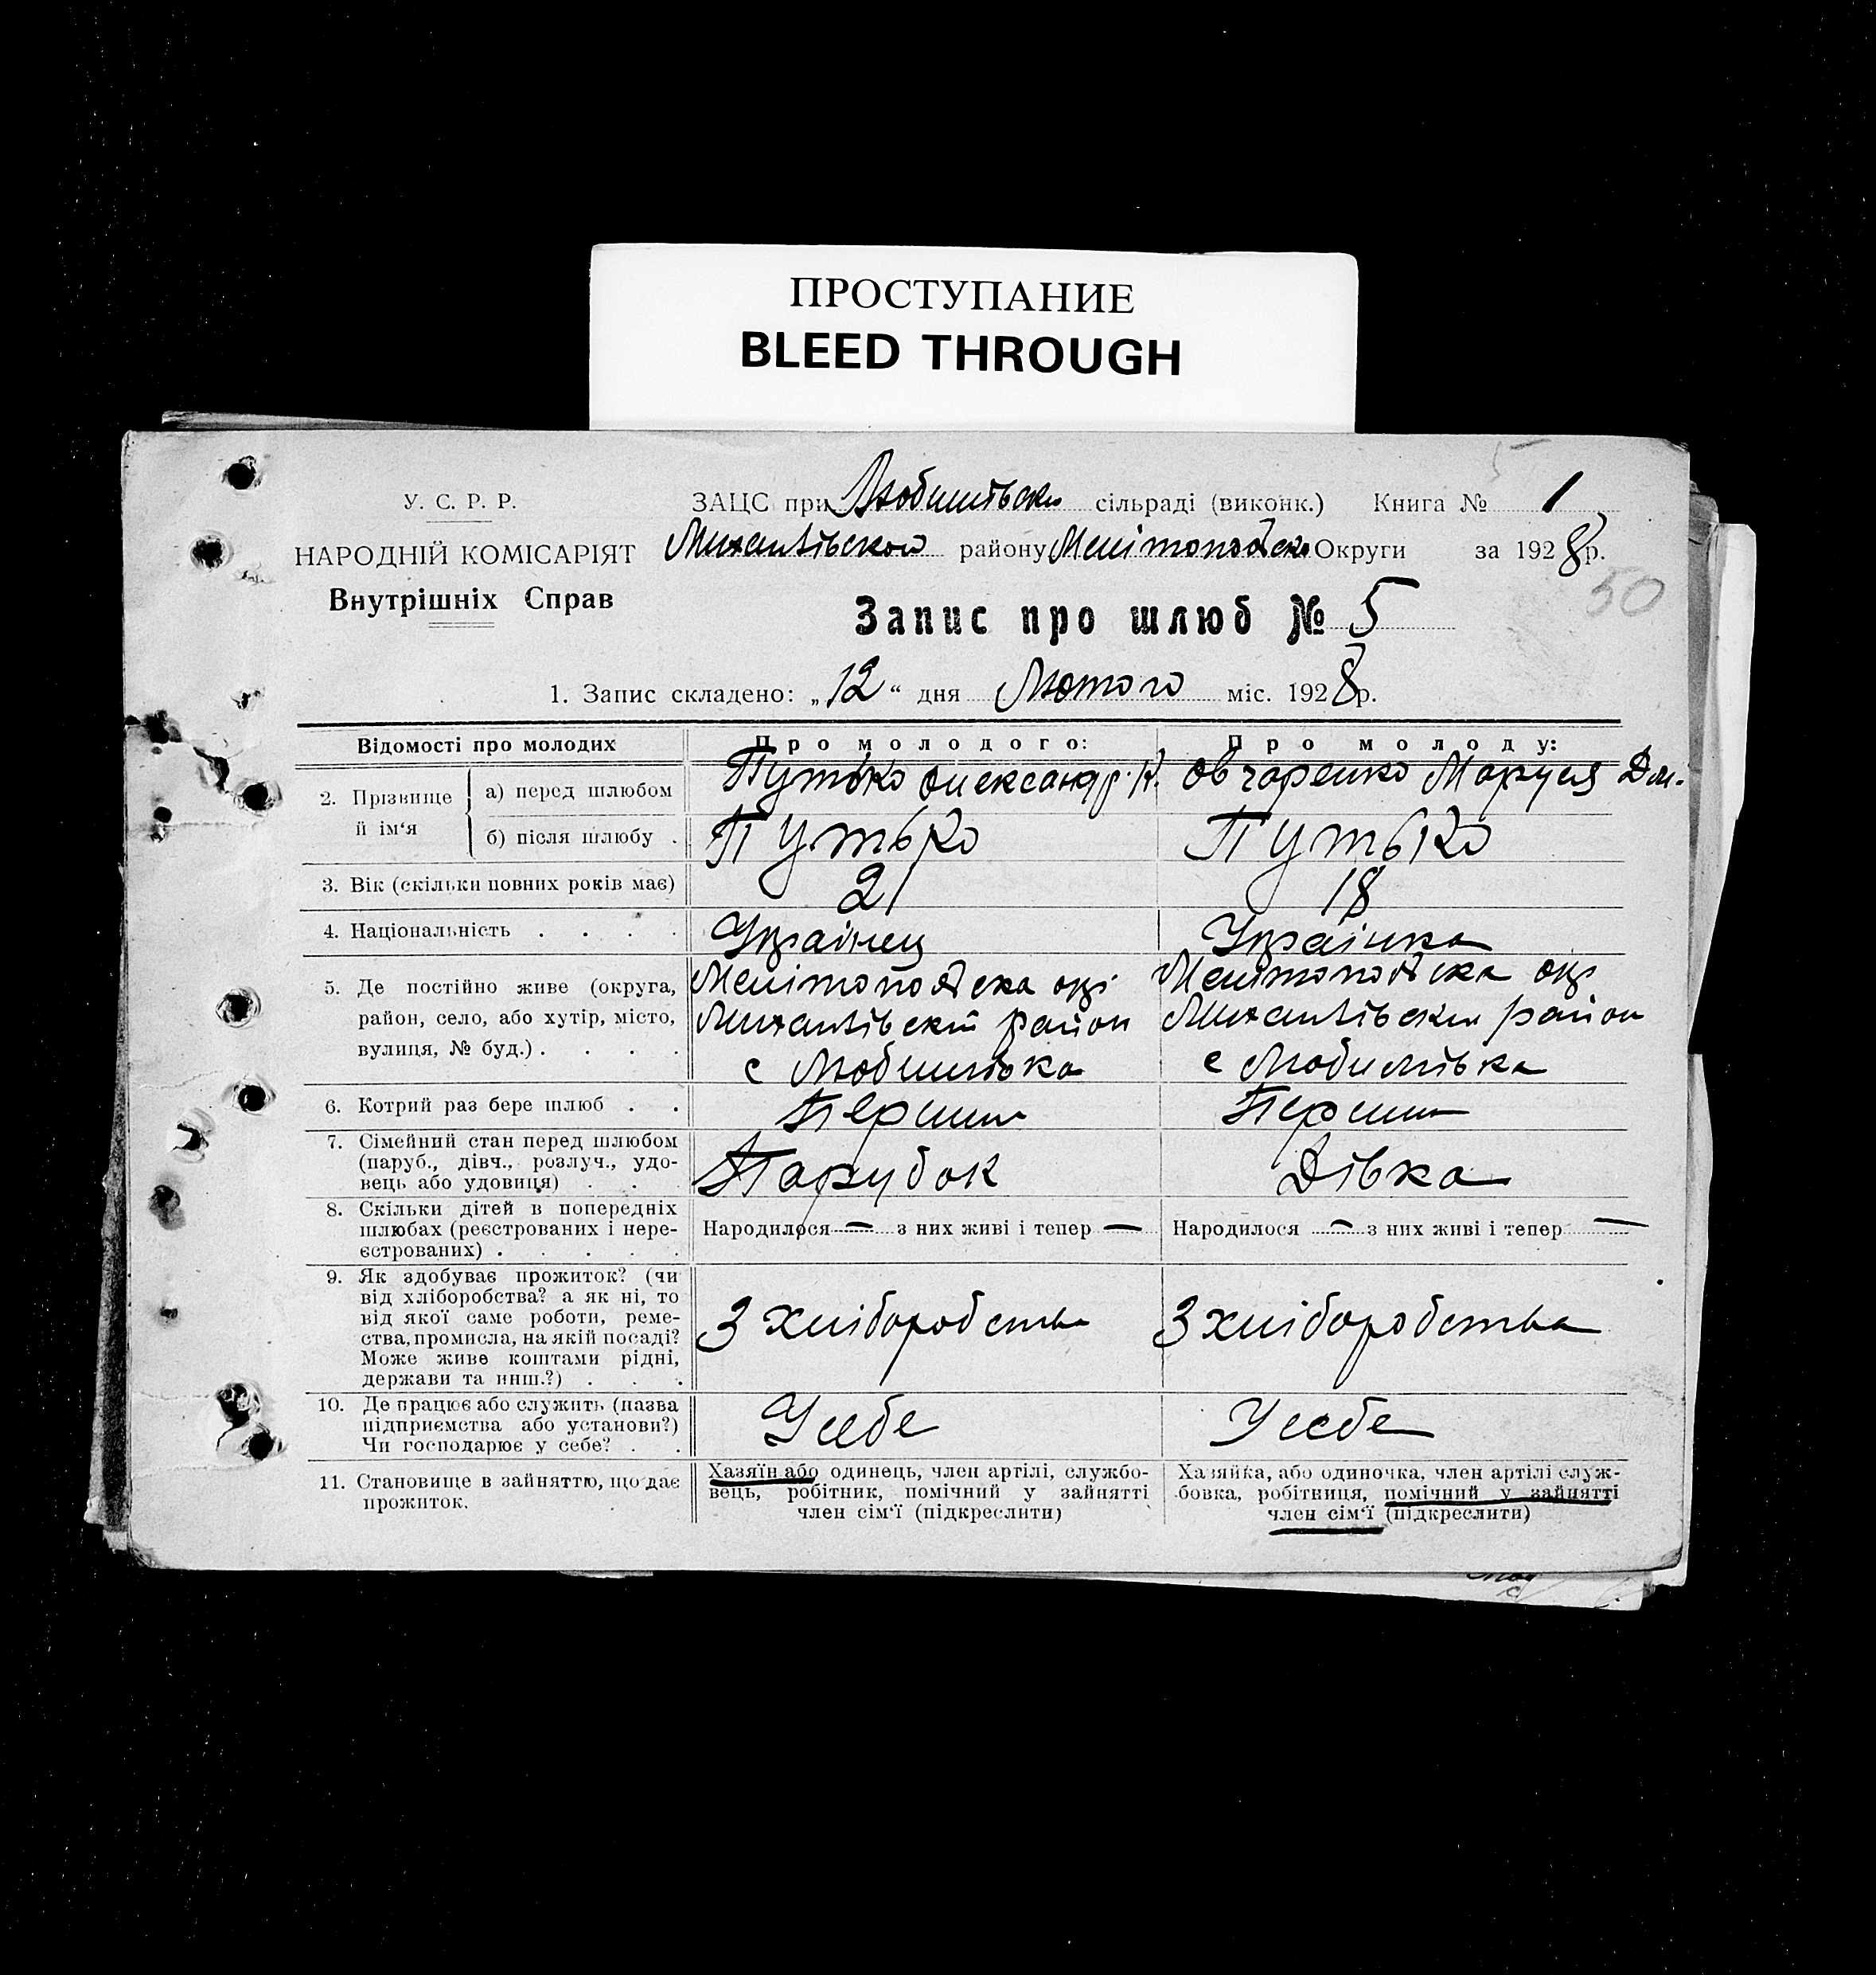 ПРОСТУПАНИЕ
BLEED THROUGH
5
У. С. Р. Р.
ЗАЦС при Любимівські сільраді (виконк.) Книга № 1
НАРОДНІЙ КОМІСАРІЯТ
Михайлівського району Мелітопольсько Округи за 1928 р.
50
Внутрішніх Справ
Запис про шлюб № 5
1. Запис складено: „12“ дня Лютого міс. 1928 р.
Відомості про молодих
Про молодого:
Про молоду:
2. Прізвище й ім‘я
а) перед шлюбом
Путько Олександр. К.
Овчаренко Маруся Дм.
б) після шлюбу .
Путько
Путько
3. Вік (скільки повних років має)
21
18
4. Національність . . . .
Українец
Українка
5. Де постійно живе (округа,
район, село, або хутір, місто,
вулиця, № буд.) . . . .
Мелітопольска окр
Михайлівский район
с Любимівка
Мелітопольска окр
Михайлівский район
с Любимівка
6. Котрий раз бере шлюб . .
Перший
Перший
7. Сімейний стан перед шлюбом
(паруб., дівч., розлуч., удо-
вець або удовиця) . . .
Парубок
Дівка
8. Скільки дітей в попередніх
шлюбах (реєстрованих і нере-
єстрованих) . . . . .
Народилося — з них живі і тепер —
Народилося — з них живі і тепер —
9. Як здобуває прожиток? (чи
від хліборобства? а як ні, то
від якої саме роботи, реме-
ства, промисла, на якій посаді?
Може живе коштами рідні,
держави та инш.?) . . .
З хліборобства
З хліборобства
10. Де працює або служить (назва
підприємства або установи?)
Чи господарює у себе? . .
У себе
У себе
11. Становище в зайняттю, що дає
прожиток.
Хазяїн або одинець, член артілі, службо-
вець, робітник, помічний у зайнятті
член сім‘ї (підкреслити)
Хазяйка, або одиночка, член артілі служ-
бовка, робітниця, помічний у зайнятті
член сім‘ї (підкреслити)